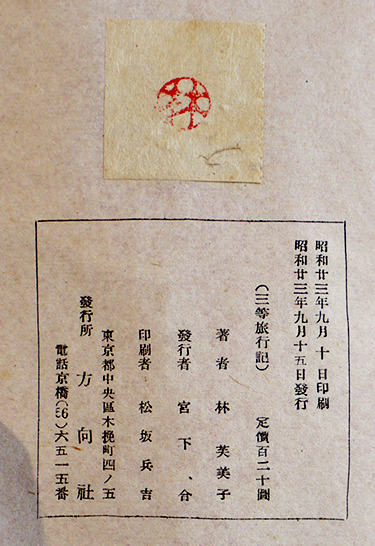 昭和廿三年九月 十 日印刷
昭和廿三年九月十五日發行
(三等旅行記) 定價百二十圓
著者 林 芙美子
發行者 宮下、合
印刷者 松坂兵吉
東京都中央區木挽町四ノ五
發行所 方向社
電話京橋(56)六五一五番